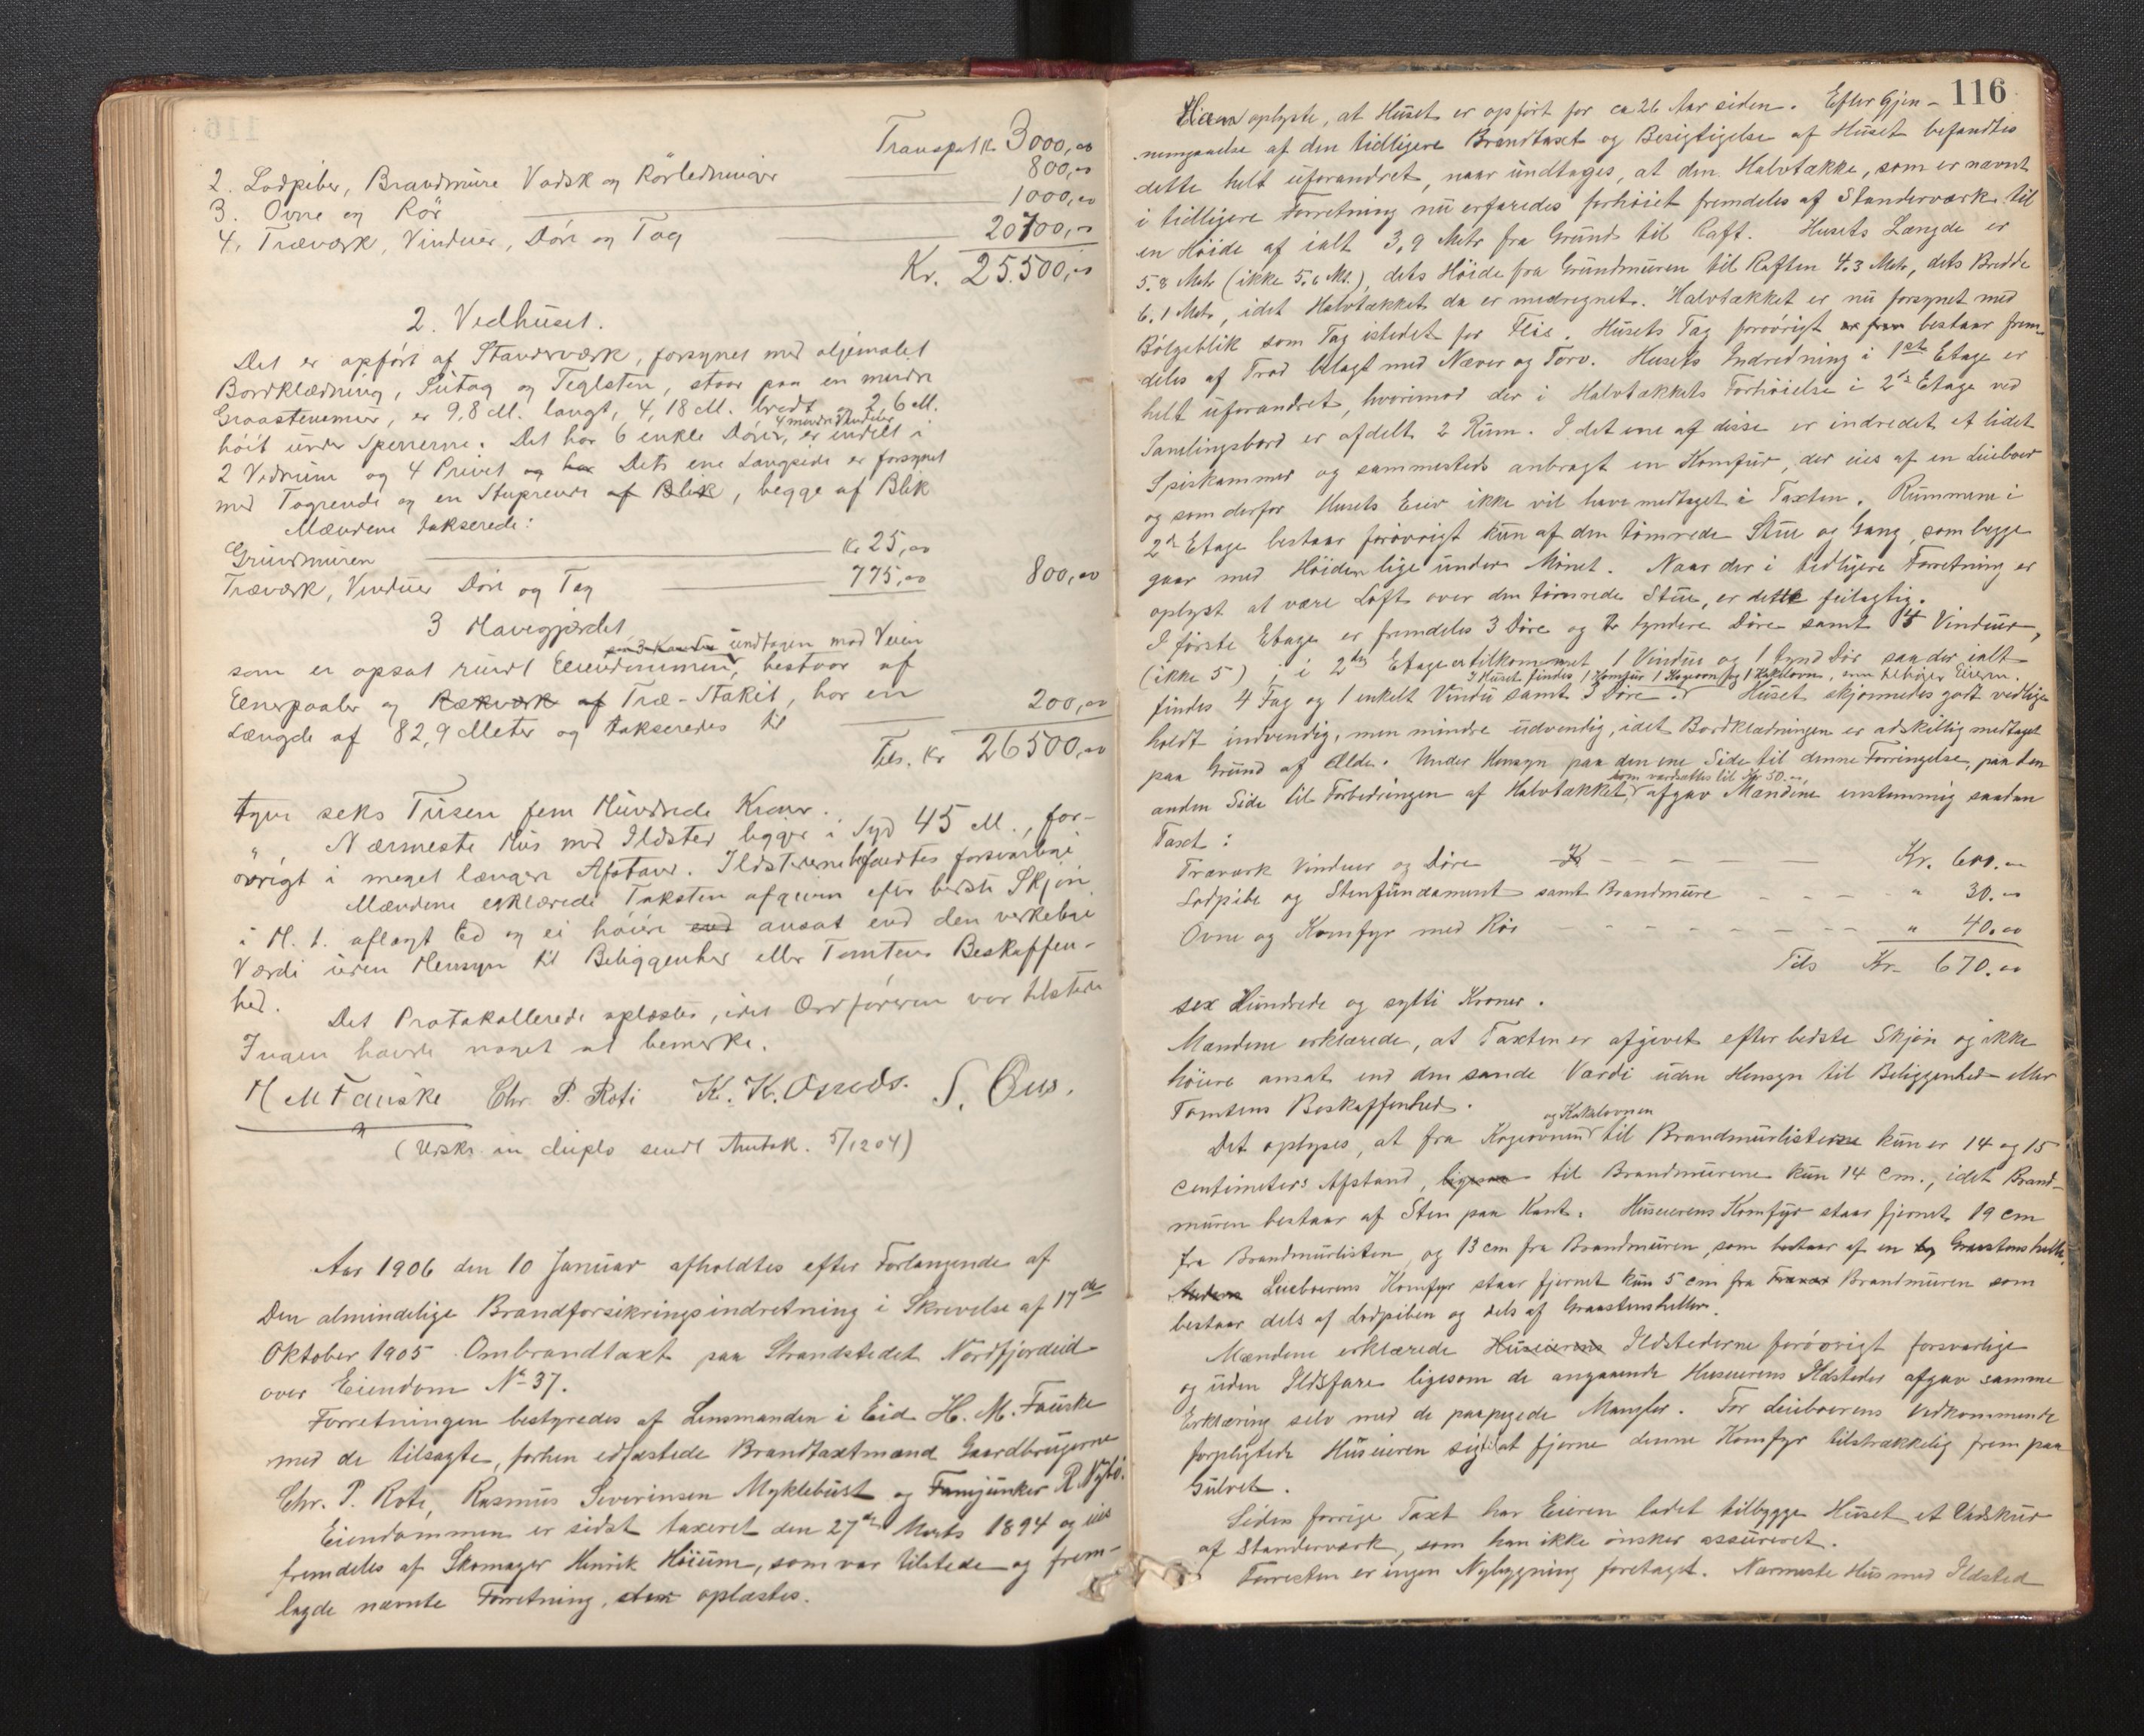 Transport Kr. 3000,00
2. Lodpiber, Brandmure Vadsk og Rörledninger 800,00
3. Ovne og Rör 1000,00
4. Træværk, Vinduer, Döre og Tag 20700,00
Kr. 25.500,00
2. Vedhuset.
Det er opfört af Standerværk, forsynet med oljemalet
Bordklædning, Sutag og Teglsten, staar paa en mindre
Graastensmur, er 9,8 M. langt, 4,18 M. bredt og 2,6 M.
höit under Sperrerne. Det har 6 enkle Dörer, 4 mindre Vinduer, er indelt i
2 Vedrum og 4 Privet og har Dets ene Langside er forsynet
med Tagrende og en Stuprende af Blik, begge af Blik
Mændene takserede:
Grundmuren Kr 25,00
Træværk, Vinduer Döre og Tag 775,00 800,00
3 Havegjærdet
paa 3 Kanter undtagen mod Veien
som er opsat rundt Eiendommen, bestaar af
Enerpaaler og Rækværk af Træ-Stakit, har en
Længde af 82,9 Meter og takseredes til 200,00
Tils. Kr 26500,00
tyve seks Tusen fem Hundrede Kroner.
" Nærmeste Hus med Ildsted ligger i Syd 45 M., for-
övrigt i meget længere Afstand. Ildstederne befandtes forsvarlige
Mændene erklærede Taksten afgiven efter bedste Skjön
i H. t. aflagt Ed og ei höiere end ansat end den verkelige
Værdi uden Hensyn til Beliggenhed eller Tomtens Beskaffen-
hed.
Det Protokollerede oplæstes, idet Ordföreren var tilstede
Ingen havde noget at bemerke.
H M Fauske Chr. P. Roti K. K. Osnes. S. Ous.
(Udskr. in duplo sendt Amtsk. 5/12 04)
Aar 1906 den 10 Januar afholdtes efter Forlangende af
Den almindelige Brandforsikringsindretning i Skrivelse af 17de
Oktober 1905 Ombrandtaxt paa Strandstedet Nordfjordeid
over Eiendom No 37.
Forretningen bestyredes af Lensmanden i Eid H. M. Fauske
med de tilsagte, forhen edfæstede Brandtaxtmænd Gaardbrugerne
Chr. P. Roti, Rasmus Severinsen Myklebust og Fanejunker R. Nybö.
Eiendommen er sidst taxeret den 27de Marts 1894 og eies
fremdeles af Skomager Henrik Höium, som var tilstede og frem-
lagde nævnte Forretning, der oplæstes.
116
Han oplyste, at Huset er opfört for ca 26 Aar siden. Efter Gjen-
nemgaaelse af den tidligere Brandtaxt og Besigtigelse af Huset befandtes
dette helt uforandret, naar undtages, at den Halvtække, som er nævnt
i tidligere Forretning nu erfaredes forhöiet fremdeles af Standerværk til
en Höide af ialt 3,9 Mtr fra Grund til Raft. Husets Længde er
5.8 Mtr (ikke 5.6 Mt.), dets Höide fra Grundmuren til Raften 4.3 Mtr, dets Bredde
6.1 Mtr, idet Halvtækket da er medregnet. Halvtækket er nu forsynet med
Bölgeblik som Tag istedet for Flis. Husets Tag forövrigt er frem bestaar frem-
deles af Trod belagt med Næver og Torv. Husets Indredning i 1ste Etage er
helt uforandret, hvorimod der i Halvtækkets Forhöielse i 2den Etage ved
Samlingsbord er afdelt 2 Rum. I det ene af disse er indredet et lidet
Spiskammer og sammesteds anbragt en Komfur, der eies af en Leieboer
og som derfor Husets Eier ikke vil have medtaget i Taxten. Rummene i
2den Etage bestaar forövrigt kun af den tömrede Stue og Gang, som begge
gaar med Höiden lige under Mönet. Naar der i tidligere Forretning er
oplyst at være Loft over den tömrede Stue, er dette feilagtig.
I förste Etage er fremdeles 3 Döre og 2 tyndere Döre samt 4 Vinduer,
(ikke 5), i 2den Etage er tilkommet 1 Vindu og 1 tynd Dör saa der ialt
I Huset findes 1 Komfur 1 Kogeovn og 1 Kakkelovn, som tilhörer Eieren.
findes 4 Fag og 1 enkelt Vindu samt 3 Döre. Huset skjönnedes godt vedlige-
holdt indvendig, men mindre udvendig, idet Bordklædningen er adskillig medtaget
paa Grund af Ælde. Under Hensyn paa den ene Side til denne Forringelse, paa den
anden Side til Forbedringen af Halvtækket, som værdsættes til Kr 50.00, afgav Mændene enstemmig saadan
Taxt:
Træværk Vinduer og Döre Kr. 600.00
Lodpibe og Stenfundament samt Brandmure " 30.00
Ovne og Komfyr med Rör " 40.00
Tils Kr. 670.00
sex Hundrede og sytti Kroner.
Mændene erklærede, at Taxten er afgivet efter bedste Skjön og ikke
höiere ansat end den sande Værdi uden Hensyn til Beliggenhed eller
Tomtens Beskaffenhed.
Det oplyses, at fra Kogeovnen og Kakelovnen til Brandmurlisterne kun er 14 og 15
centimeters Afstand, ligesaa til Brandmurene kun 14 cm., idet Brand-
muren bestaar af Sten paa Kant. Huseierens Komfyr staar fjernet 19 cm
fra Brandmurlisten og 13 cm fra Brandmuren, som bestaar af en Graastenshelle.
Leieboerens Komfyr staar fjernet kun 5 cm fra Brandmuren som
bestaar dels af Lodpiben og dels af Graastensheller.
Mændene erklærede Huseierens Ildstederne forövrigt forsvarlige
og uden Ildsfare ligesom de angaaende Huseierens Ildsteder afgav samme
Erklæring selv med de paapegede Mangler. For Leieboerens Vedkommende
forpligtede Huseieren sig til at fjerne denne Komfyr tilstrækkelig frem paa
Gulvet.
Siden forrige Taxt har Eieren ladet tilbygge Huset et Vedskur
af Standerværk, som han ikke önsker assureret.
Forresten er ingen Nybygning foretaget. Nærmeste Hus med Ildsted